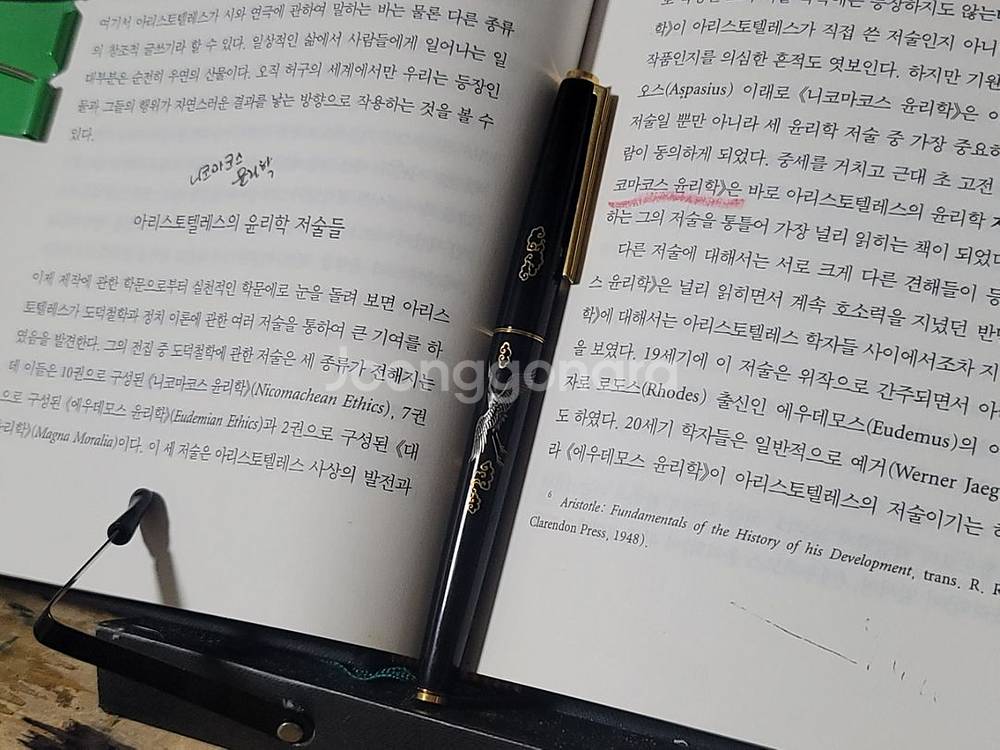 여기서 아리스토텔레스가 시와 연극에 관하여 말하는 바는 물론 다른 종류
의 창조적 글쓰기라 할 수 있다. 일상적인 삶에서 사람들에게 일어나는 일
대부분은 순전히 우연의 산물이다. 오직 허구의 세계에서만 우리는 등장인
물과 그들의 행위가 자연스러운 결과를 낳는 방향으로 작용하는 것을 볼 수
있다.
니코마코스
윤리학
아리스토텔레스의 윤리학 저술들
이제 제작에 관한 학문으로부터 실천적인 학문에로 눈을 돌려 보면 아리스
토텔레스가 도덕철학과 정치 이론에 관한 여러 저술을 통하여 큰 기여를 하
였음을 발견한다. 그의 전집 중 도덕철학에 관한 저술은 세 종류가 전해지는
데 이들은 10권으로 구성된 《니코마코스 윤리학》(Nicomachean Ethics), 7권
으로 구성된 《에우데모스 윤리학》(Eudemian Ethics)과 2권으로 구성된 《대
리학》(Magna Moralia)이다. 이 세 저술은 아리스토텔레스 사상의 발전과
등장하지도 않는
학》이 아리스토텔레스가 직접 쓴 저술인지 아니
작품인지를 의심한 흔적도 엿보인다. 하지만 기원
오스(Aspasius) 이래로 《니코마코스 윤리학》은
저술일 뿐만 아니라 세 윤리학 저술 중 가장 중요
람이 동의하게 되었다. 중세를 거치고 근대 초 고전
코마코스 윤리학》은 바로 아리스토텔레스의 윤리학
하는 그의 저술을 통틀어 가장 널리 읽히는 책이 되었다
다른 저술에 대해서는 서로 크게 다른 견해들이
스 윤리학》은 널리 읽히면서 계속 호소력을 지녔던 반
학》에 대해서는 아리스토텔레스 학자들 사이에서조차 지
을 보였다. 19세기에 이 저술은 위작으로 간주되면서 아
자로 로도스(Rhodes) 출신인 에우데모스(Eudemus)의
도 하였다. 20세기 학자들은 일반적으로 예거(Werner Jaeg
라 《에우데모스 윤리학》이 아리스토텔레스의 저술이기는
6 Aristotle: Fundamentals of the History of his Development, trans. R. R
Clarendon Press, 1948).
Joonggonara